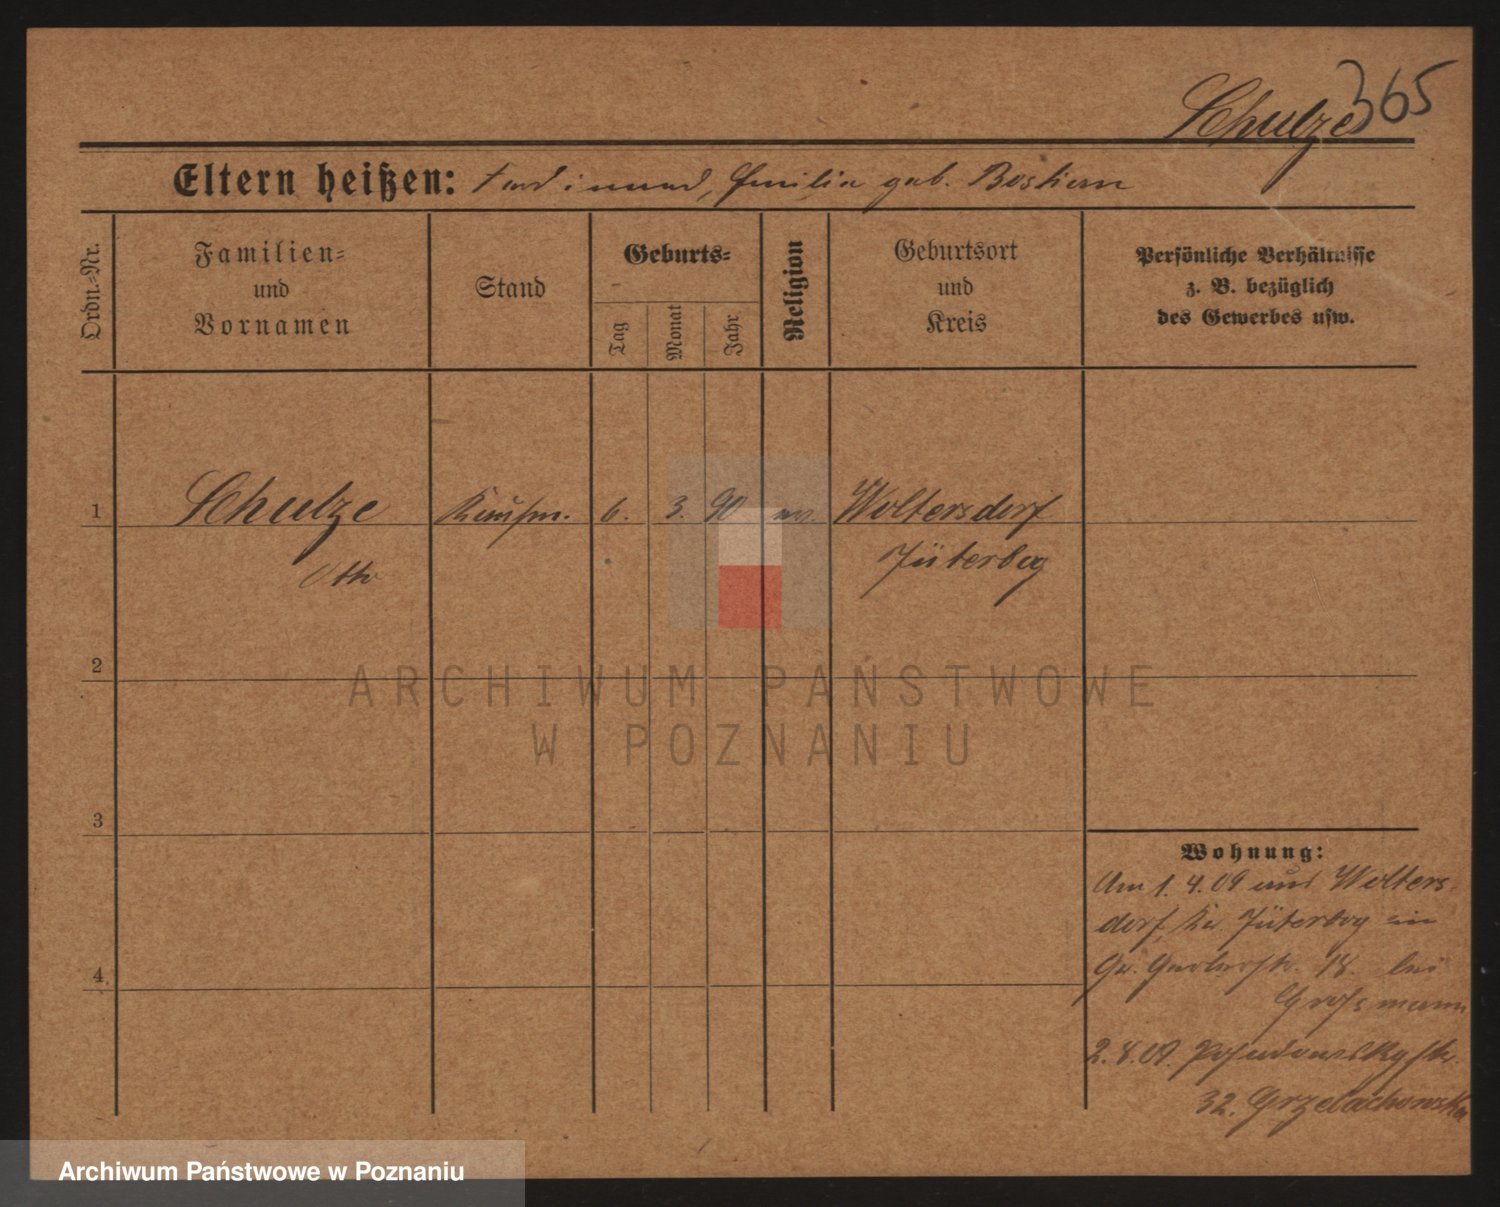 365
Schulze
Eltern heißen: Ferdinand, Emilie geb. Bostian
Ordn.-Nr.
Familien- und Vornamen
Stand
Geburts-
Tag
Monat
Jahr
Religion
Geburtsort und Kreis
Persönliche Verhältnisse
z. B. bezüglich
des Gewerbes usw.
1 Schulze Kaufm. 6. 3. 90 ev. Woltersdorf
Otto Jüterbog
2
3
4
ARCHIWUM PAŃSTWOWE
W POZNANIU
Wohnung:
Am 1. 4. 09 aus Wolters-
dorf, Kr. Jüterbog in
18. bei
Großmann
2. 8. 09. Posadowskystr.
32. Grzelachowska
Archiwum Państwowe w Poznaniu